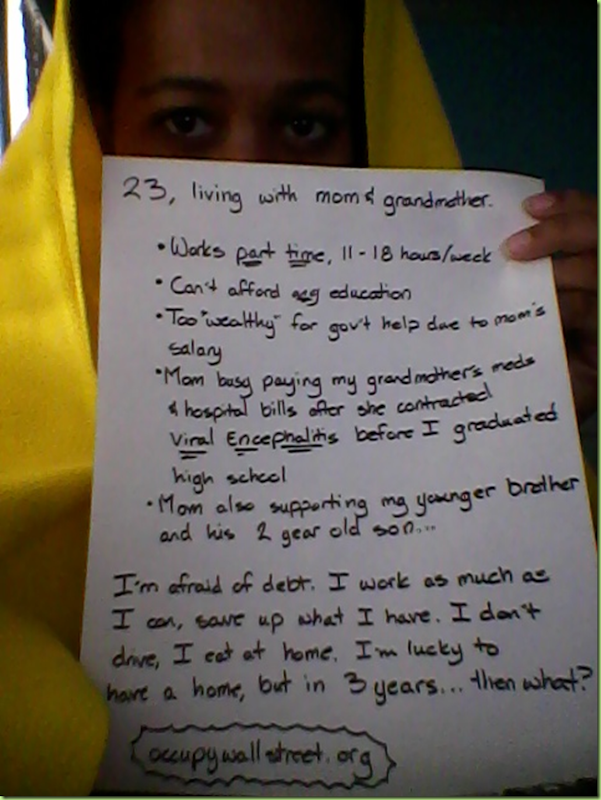 23, living with mom & grandmother.
• Works part time, 11-18 hours/week
• Can't afford education
• Too "wealthy" for gov't help due to mom's
salary
• Mom busy paying my grandmother's meds
& hospital bills after she contracted
Viral Encephalitis before I graduated
high school
• Mom also supporting my younger brother
and his 2 year old son...
I'm afraid of debt. I work as much as
I can, save up what I have. I don't
drive, I eat at home. I'm lucky to
have a home, but in 3 years... then what?
occupywallstreet.org